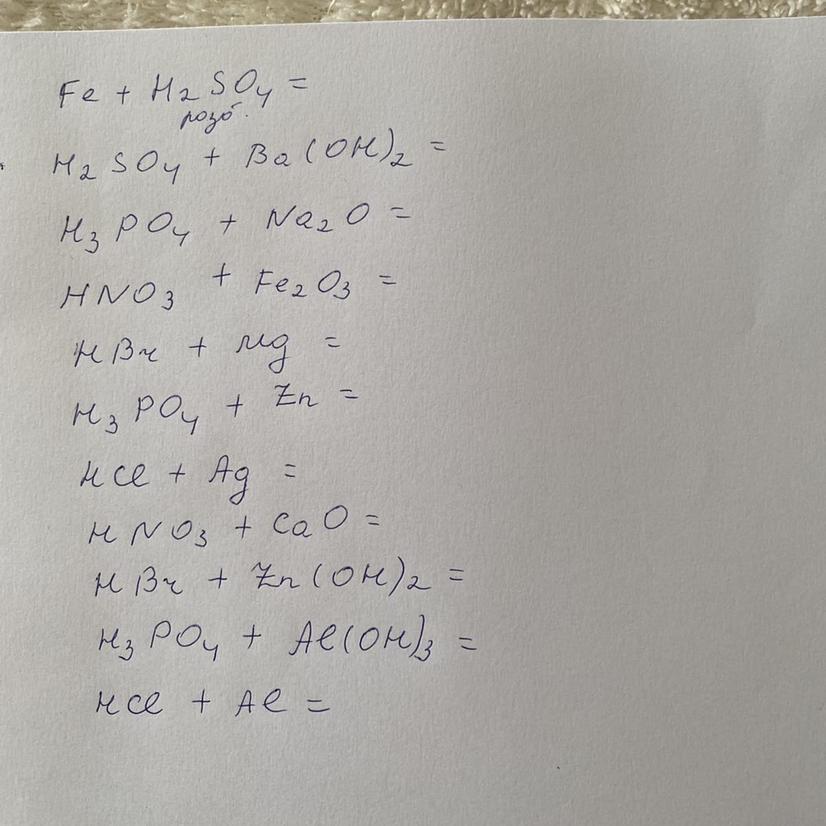 Fe + H2SO4 =
розб.
H2SO4 + Ba(OH)2 =
H3PO4 + Na2O =
HNO3 + Fe2O3 =
HBr + Mg =
H3PO4 + Zn =
HCl + Ag =
HNO3 + CaO =
HBr + Zn(OH)2 =
H3PO4 + Al(OH)3 =
HCl + Al =